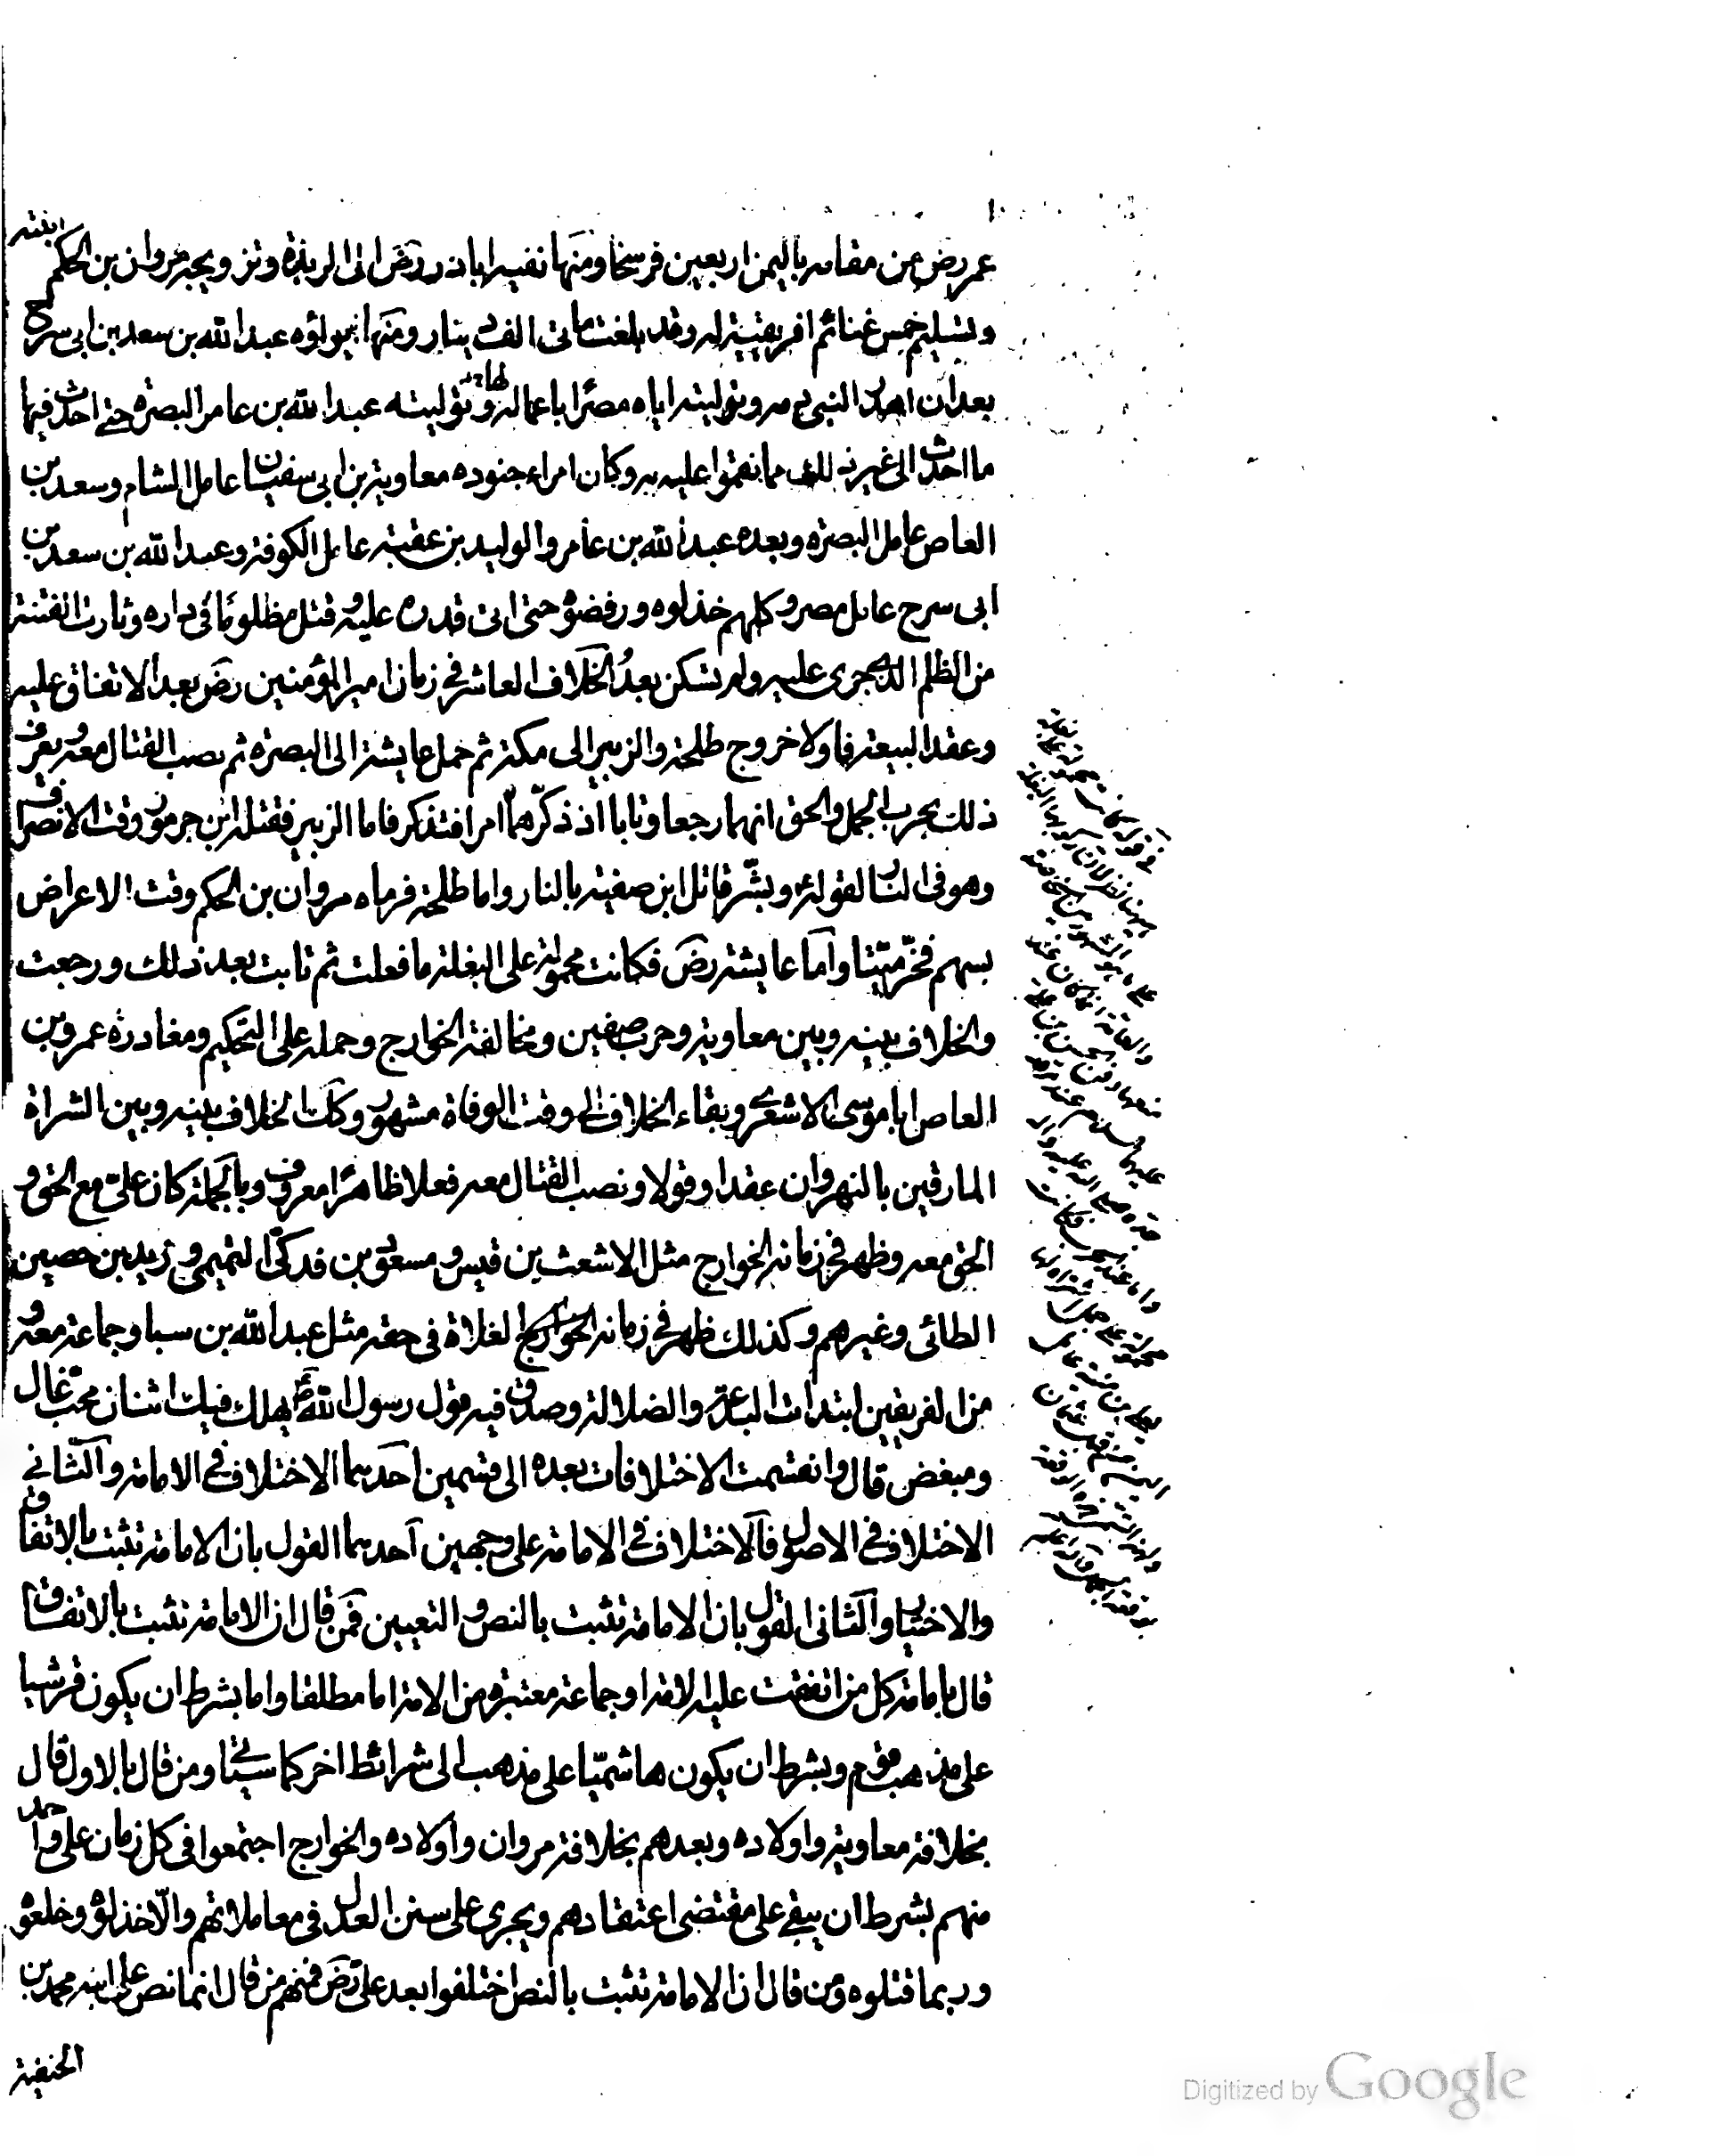 عمر رض من مقامه باليمن اربعين فرسخا ومنها نفيه اباذر رض الى الربذة وتزويجه مروان بن الحكم ابنته
وتسليم خمس غنائم افريقية له وقد بلغت مائتى الف دينار ومنها ايواؤه عبد الله بن سعد بن ابى سرح
بعد ان اهدر النبى دمه وتوليته اياه مصر باعمالها وتوليته عبد الله بن عامر البصرة حتى احدث فيها
ما احدث الى غير ذلك مما نقموا عليه به وكان امراء جنوده معاوية بن ابى سفين عامل الشام وسعد بن
العاص عامل البصرة وبعده عبد الله بن عامر والوليد بن عقبة عامل الكوفة وعبد الله بن سعد بن
ابى سرح عامل مصر وكلهم خذلوه ورفضوه حتى اتى قدره عليه وقتل مظلوما فى داره وثارت الفتنة
من الظلم الذى جرى عليه ولم تسكن بعد الخلاف العاشر فى زمان امير المؤمنين رض بعد الاتفاق عليه
وعقد البيعة فاولا خروج طلحة والزبير الى مكة ثم حمل عايشة الى البصرة ثم نصب القتال معه ويعرف
ذلك بحرب الجمل والحق انهما رجعا وتابا اذ ذكرهما امرا فتذكر فاما الزبير فقتله ابن جرموز وقت الانصراف
وهو فى النار لقوله وبشر قاتل ابن صفية بالنار واما طلحة فرماه مروان بن الحكم وقت الاعراض
بسهم فخر ميتا واما عايشة رض فكانت محمولة على البغلة ما فعلت ثم تابت بعد ذلك ورجعت
والخلاف بينه وبين معاوية وحرب صفين ومخالفة الخوارج وحمله على التحكيم ومغادرة عمرو بن
العاص ابا موسى الاشعرى وبقاء الخلاف الى وقت الوفاة مشهور وكذلك الخلاف بينه وبين الشراة
المارقين بالنهروان عقدا وقولا ونصب القتال معه فعلا ظاهرا معروف وبالجملة كان على مع الحق و
الحق معه وظهر فى زمانه الخوارج مثل الاشعث بن قيس ومسعود بن فدكى التميمى وزيد بن حصين
الطائى وغيرهم وكذلك ظهر فى زمانه الغلاة فى حقه مثل عبد الله بن سبا وجماعة معه و
من الفريقين ابتدات البدعة والضلالة وصدق فيه قول رسول الله يهلك فيك اثنان محب غال
ومبغض قال وانقسمت الاختلافات بعده الى قسمين احدهما الاختلاف فى الامامة والثانى
الاختلاف فى الاصول فالاختلاف فى الامامة على وجهين احدهما القول بان الامامة تثبت بالاتفاق
والاختيار والثانى القول بان الامامة تثبت بالنص والتعيين فمن قال ان الامامة تثبت بالاتفاق
قال بامامة كل من اتفقت عليه الامة او جماعة معتبرة من الامة اما مطلقا واما بشرط ان يكون قرشيا
على مذهب قوم وبشرط ان يكون هاشميا على مذهب الى شرائط اخر كما سياتى ومن قال بالاول قال
بخلافة معاوية واولاده وبعدهم بخلافة مروان واولاده والخوارج اجتمعوا فى كل زمان على واحد
منهم بشرط ان يبقى على مقتضى اعتقادهم ويجرى على سنن العدل فى معاملاتهم والا خذلوه وخلعوه
وربما قتلوه ومن قال ان الامامة تثبت بالنص اختلفوا بعد على رض فمنهم من قال انما نص على ابنه محمد بن
الحنفية
Digitized by Google